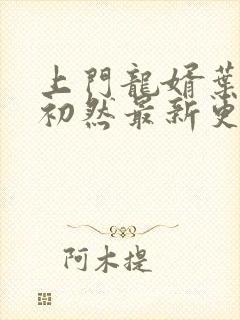 上門龍婿葉
初然最新更
阿木提